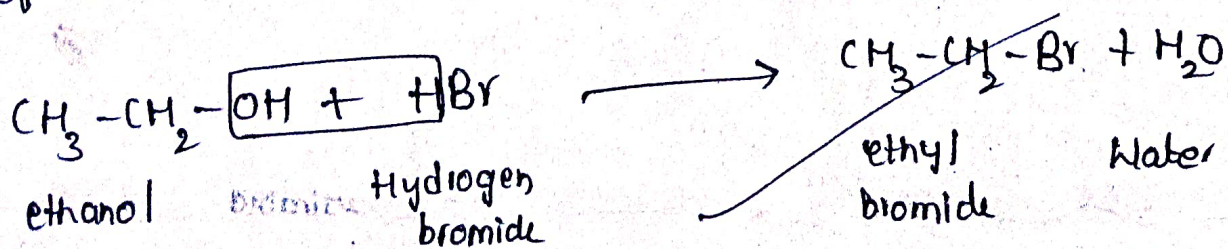 CH₃-CH₂-OH + HBr ⟶ CH₃-CH₂-Br + H₂O
ethanol Hydrogen bromide ethyl bromide Water